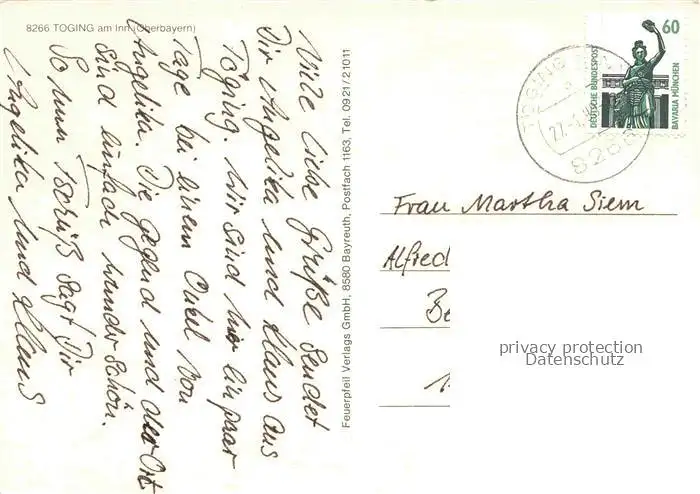 8266 TÖGING am Inn (Oberbayern)
Viele liebe Grüße sendet
Dir Angelika und Klaus aus
Töging. Wir sind hier ein paar
Tage bei einem Onkel von
Angelika. Die Gegend und der Ort
sind einfach wunderschön.
So nun Tschüß sagt Dir
Angelika und Klaus
Feuerpfeil Verlags GmbH, 8580 Bayreuth, Postfach 1163, Tel. 0921/21011
60
DEUTSCHE BUNDESPOST
BAVARIA MÜNCHEN
TÖGING
8266
Frau Martha Siem
Alfred
privacy protection
Datenschutz